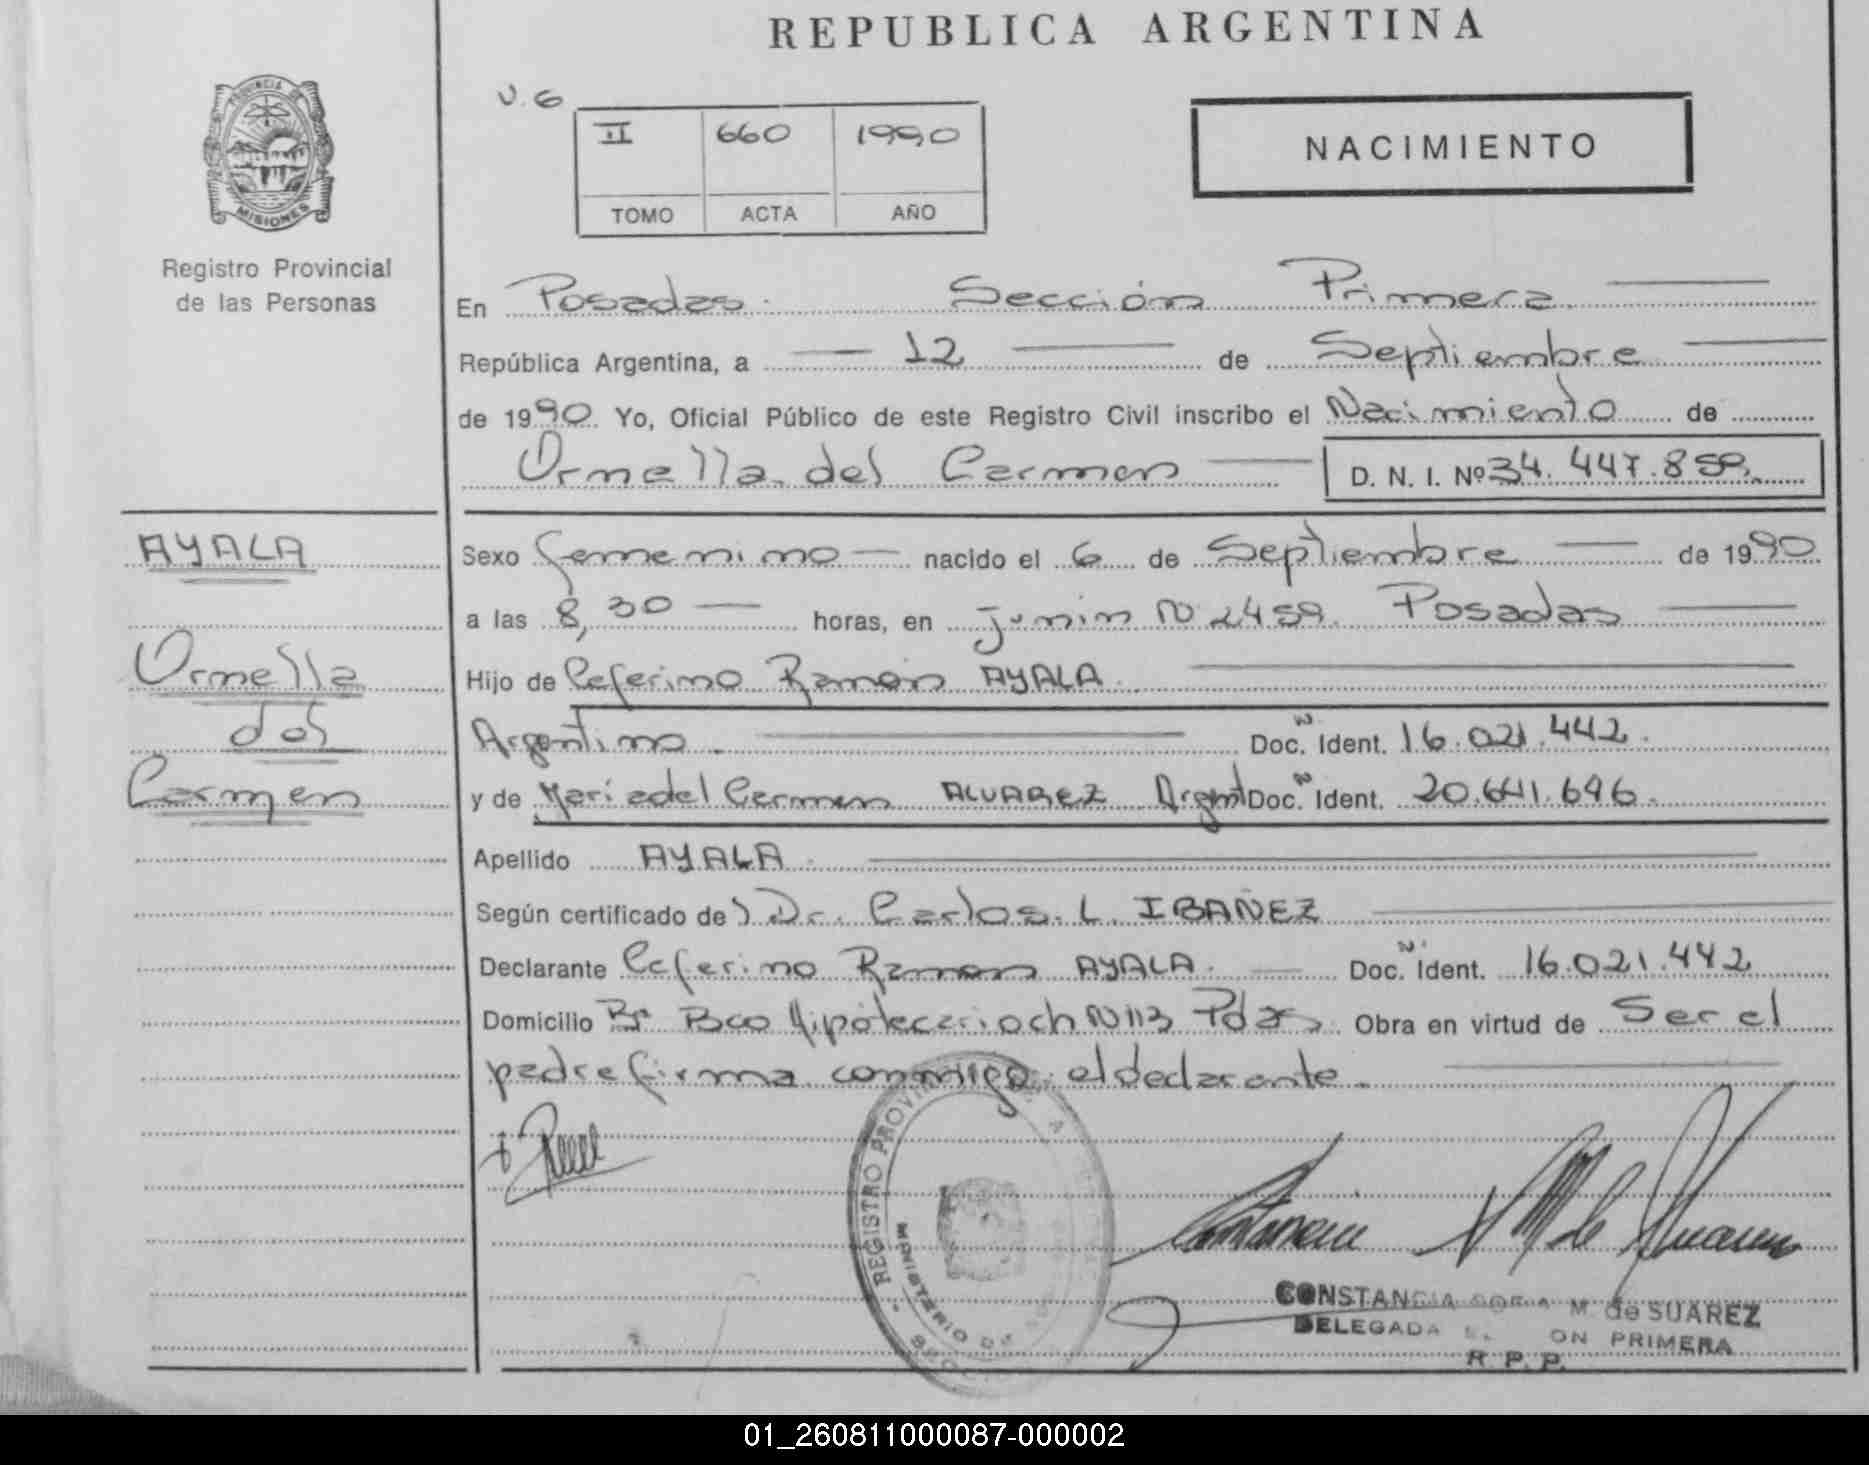 REPUBLICA ARGENTINA
PROVINCIA DE
MISIONES
Registro Provincial
de las Personas
V. 6
II 660 1990
TOMO ACTA AÑO
NACIMIENTO
En Posadas. Sección Primera
República Argentina, a 12 de Septiembre
de 1990. Yo, Oficial Público de este Registro Civil inscribo el Nacimiento de
Ornella del Carmen D. N. I. Nº 34.447.859
AYALA
Sexo femenino nacido el 6 de Septiembre de 1990
a las 8,30 horas, en junin Nº 2459. Posadas
Ornella
Hijo de Ceferino Ramón AYALA
del
Argentino. Doc. Nº Ident. 16.021.442.
Carmen
y de Maria del Carmen ALVAREZ Argent Doc. Nº Ident. 20.641.646.
Apellido AYALA
Según certificado de Dr. Carlos. L. IBAÑEZ
Declarante Ceferino Ramon AYALA. Doc. Nº Ident. 16.021.442
Domicilio Bº Bco Hipotecario ch Nº 113 Pdas Obra en virtud de Ser el
padre firma conmigo el declarante.
REGISTRO PROVINCIAL
MINISTERIO DE
CONSTANCIA M. de SUAREZ
DELEGADA PRIMERA
R. P. P.
01_260811000087-000002